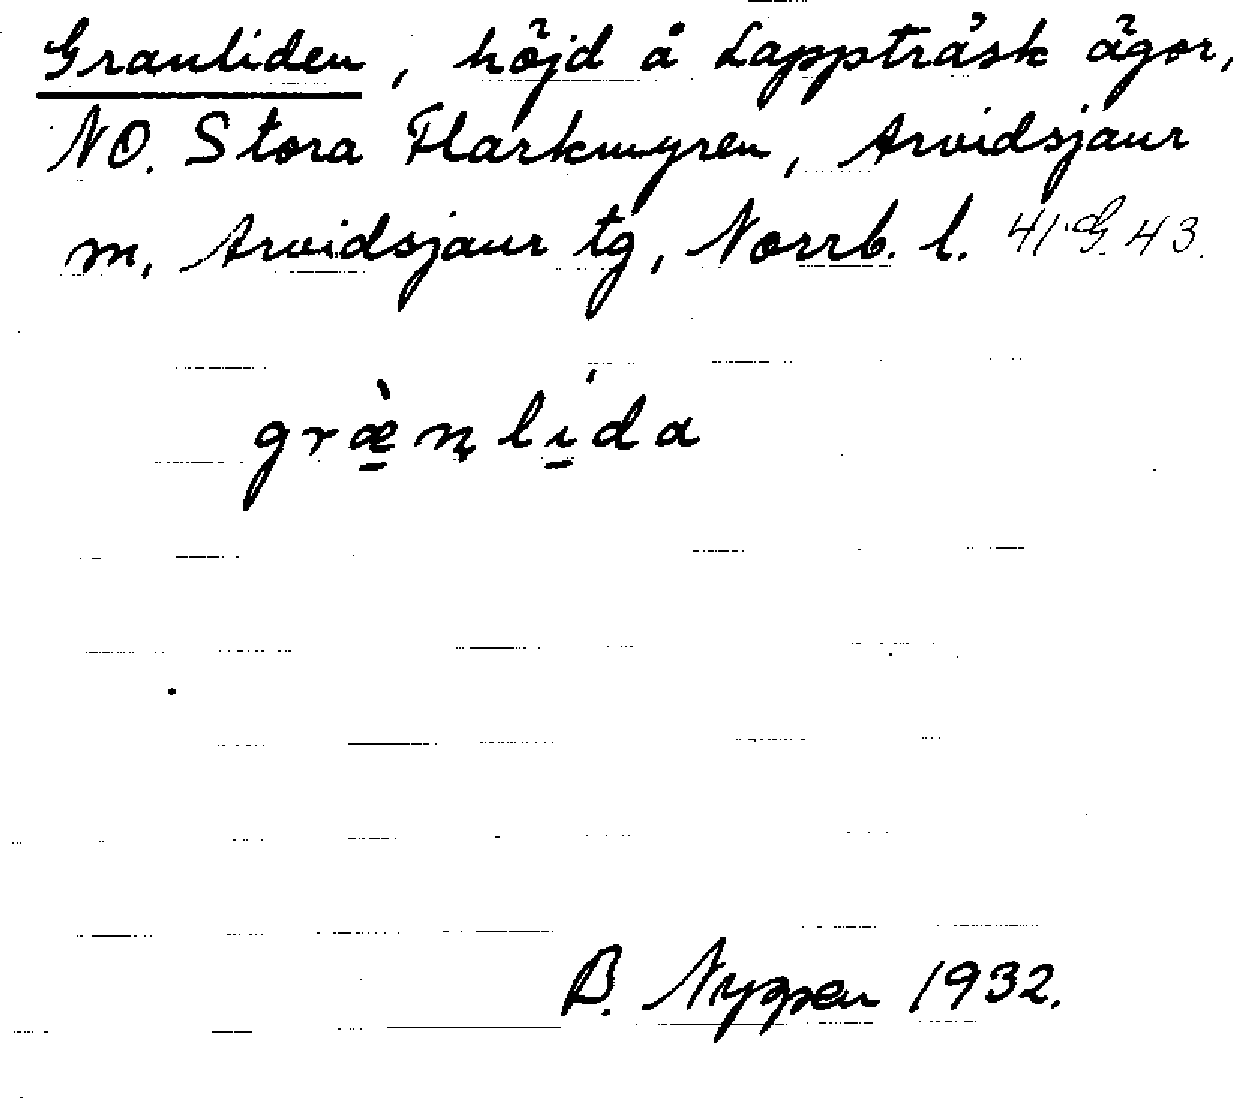 Granliden, höjd å Lappträsk ägor,
NO. Stora Flarkmyren, Arvidsjaur
m, Arvidsjaur tg, Norrb. l. 41 G. 43.
græ̠̀n̨lí̠da
B. Nyppen 1932.